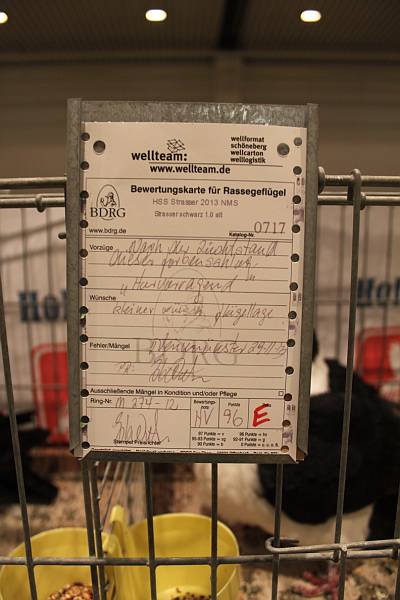 wellteam:
www.wellteam.de
wellformat
schöneberg
wellcarton
welllogistik
Bewertungskarte für Rassegeflügel
HSS Strasser 2013 NMS
Strasser schwarz 1.0 alt
BDRG
www.bdrg.de
Katalog-Nr. 0717
Vorzüge Nach der Zuchtstand
dieser Farbenschlag
"Hervorragend"
Wünsche
kleiner Flügellage
Fehler/Mängel Neumünster 29.11.13
PR:
Ausschließende Mängel in Kondition und/oder Pflege
Ring-Nr. M 274-12
Bewertungsnote HV
Punkte 96
E
Stempel Preisrichter
97 Punkte = v 96 Punkte = hv
93-95 Punkte = sg 92-91 Punkte = g
90 Punkte = b 0 Punkte = o. u. n. E.